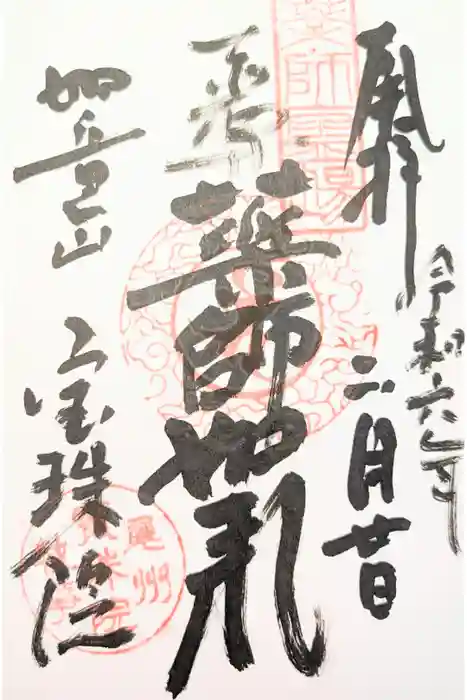 拝
令和六年
二月廿日
薬師霊場
薬師如来
如意山
宝珠院